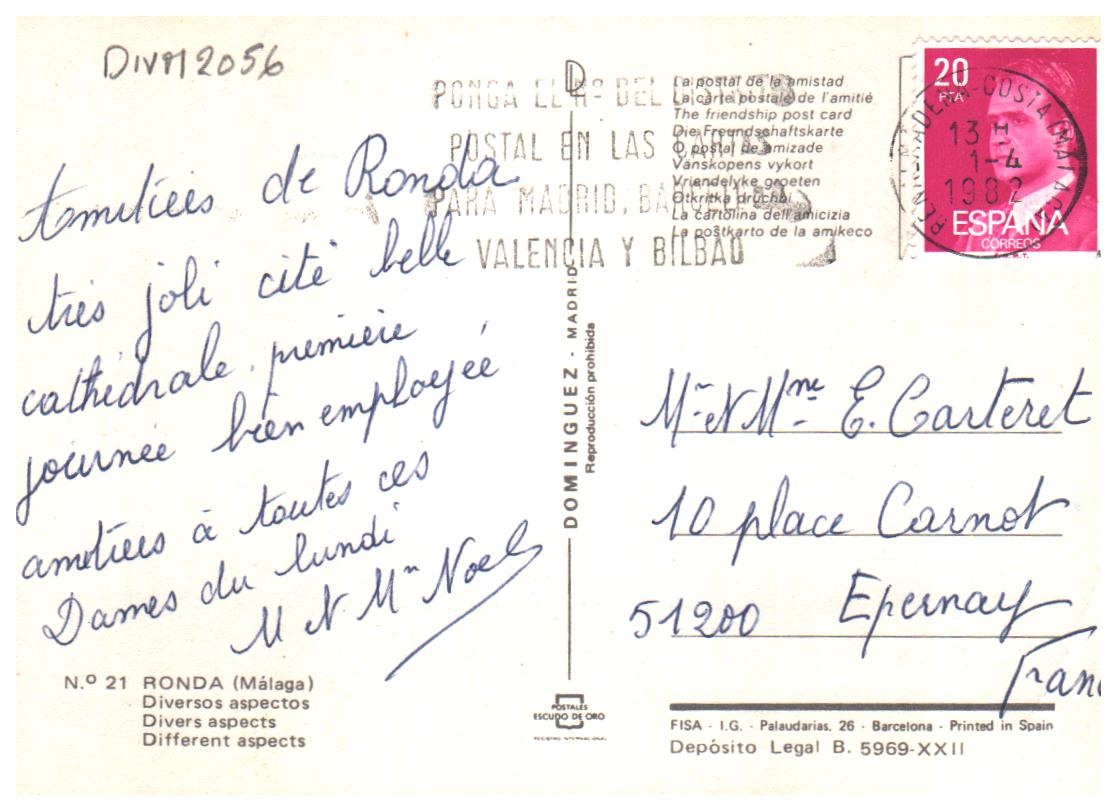 DIVM2056
Amitiées de Ronda
très joli cité belle
cathédrale, première
journée bien employée
amitiées à toutes ces
Dames du lundi
M et Mme Noel
N.º 21 RONDA (Málaga)
Diversos aspectos
Divers aspects
Different aspects
D
DOMINGUEZ - MADRID
Reproducción prohibida
POSTALES
ESCUDO DE ORO
REGISTRO INTERNACIONAL
PONGA EL Nº DEL DISTRITO
POSTAL EN LAS CARTAS
PARA MADRID, BARCELONA
VALENCIA Y BILBAO
La postal de la amistad
La carte postale de l'amitié
The friendship post card
Die Freundschaftskarte
O postal de amizade
Vänskopens vykort
Vriendelyke groeten
Otkritka druchbi
La cartolina dell'amicizia
La postkarto de la amikeco
20
PTA
ESPAÑA
CORREOS
F.N.M.T.
BENALMADENA-COSTA (MALAGA)
13 H
1-4
1982
Mr et Mme E. Carteret
10 place Carnot
51200 Epernay
Franc
FISA - I.G. - Palaudarias, 26 - Barcelona - Printed in Spain
Depósito Legal B. 5969-XXII